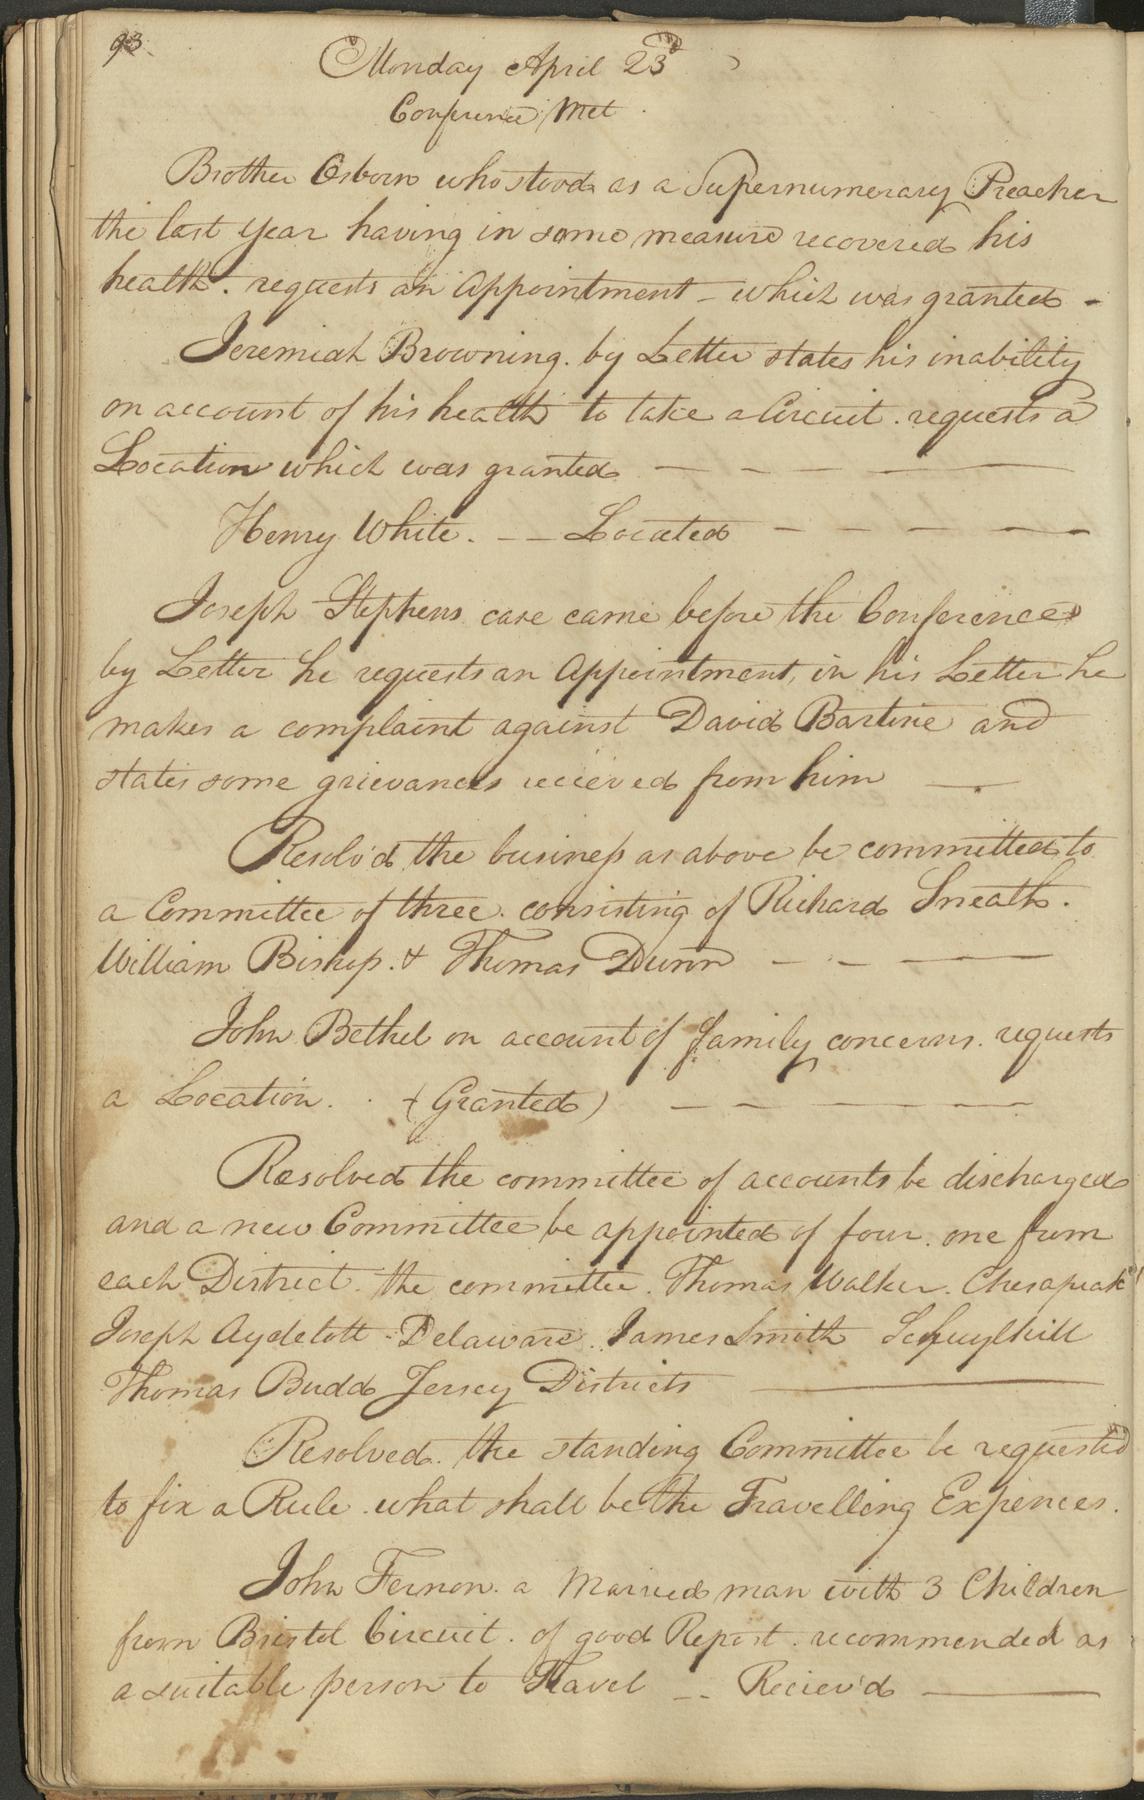 93.
Monday April 23d
Conference Met.
Brother Osborn who stood as a Supernumerary Preacher
the last year having in some measure recovered his
health. requests an Appointment – which was granted –
Jeremiah Browning. by Letter states his inability
on account of his health to take a Circuit. requests a
Location which was granted — — — —
Henry White. — — Located — — — — —
Joseph Stephens case came before the Conference
by Letter he requests an Appointment, in his Letter he
makes a complaint against David Bartine and
states some grievances recieved from him —
Resolv'd the business as above be committed to
a Committee of three. consisting of Richard Sneath.
William Bishop. & Thomas Dunn — — — —
John Bethel on account of family concerns. requests
a Location. . (Granted) — — — —
Resolved the committee of accounts be discharged
and a new Committee be appointed of four. one from
each District. the committee. Thomas Walker. Chesapeak
Joseph Aydelott - Delaware. James Smith Schuylkill
Thomas Budd Jersey Districts —
Resolved. the standing Committee be requested
to fix a Rule. what shall be the Travelling Expences.
John Fernon. a Married man with 3 Children
from Bristol Circuit. of good Report. recommended as
a suitable person to Travel — Reciev'd —